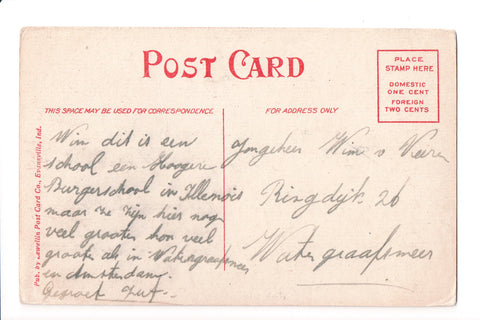 POST CARD
PLACE
STAMP HERE
DOMESTIC
ONE CENT
FOREIGN
TWO CENTS
THIS SPACE MAY BE USED FOR CORRESPONDENCE
FOR ADDRESS ONLY
Pub. by Lewellin Post Card Co., Evansville, Ind.
Wim dit is een
school een Hoogere
Burgerschool in Illenois
maar ze zijn hier nog
veel grooter hon veel
groote als in Watergraafsmeer
en Amsterdam.
Gegroet
Jongeheer Wim v Veeren
Ringdijk 26
Watergraafsmeer